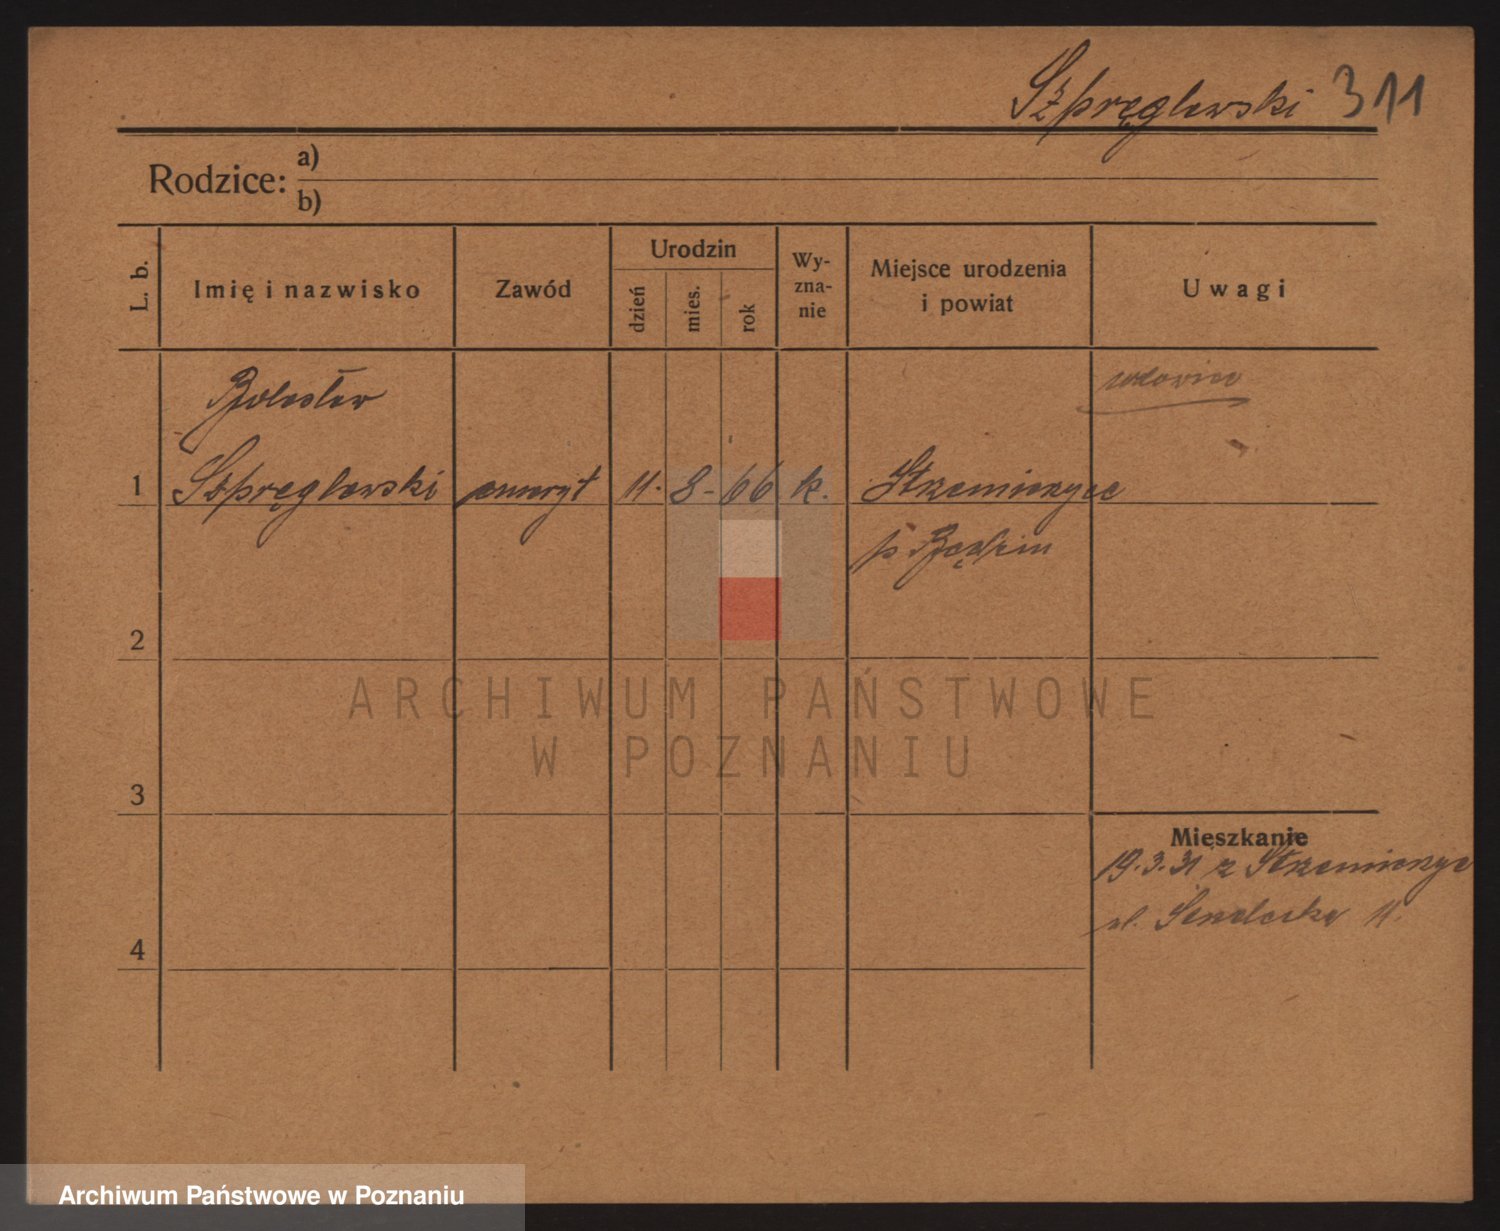 Szpręglewski 311
Rodzice: a)
b)
L. b.
Imię i nazwisko
Zawód
Urodzin
dzień
mies.
rok
Wy-
zna-
nie
Miejsce urodzenia
i powiat
Uwagi
Bolesław
wdowiec
1 Szpręglewski emeryt 11. 8- 66 k. Strzemieszyce
p. Będzin
2
ARCHIWUM PAŃSTWOWE
W POZNANIU
3
Mieszkanie
19.3.31 z Strzemieszyc
ul. 11.
4
Archiwum Państwowe w Poznaniu